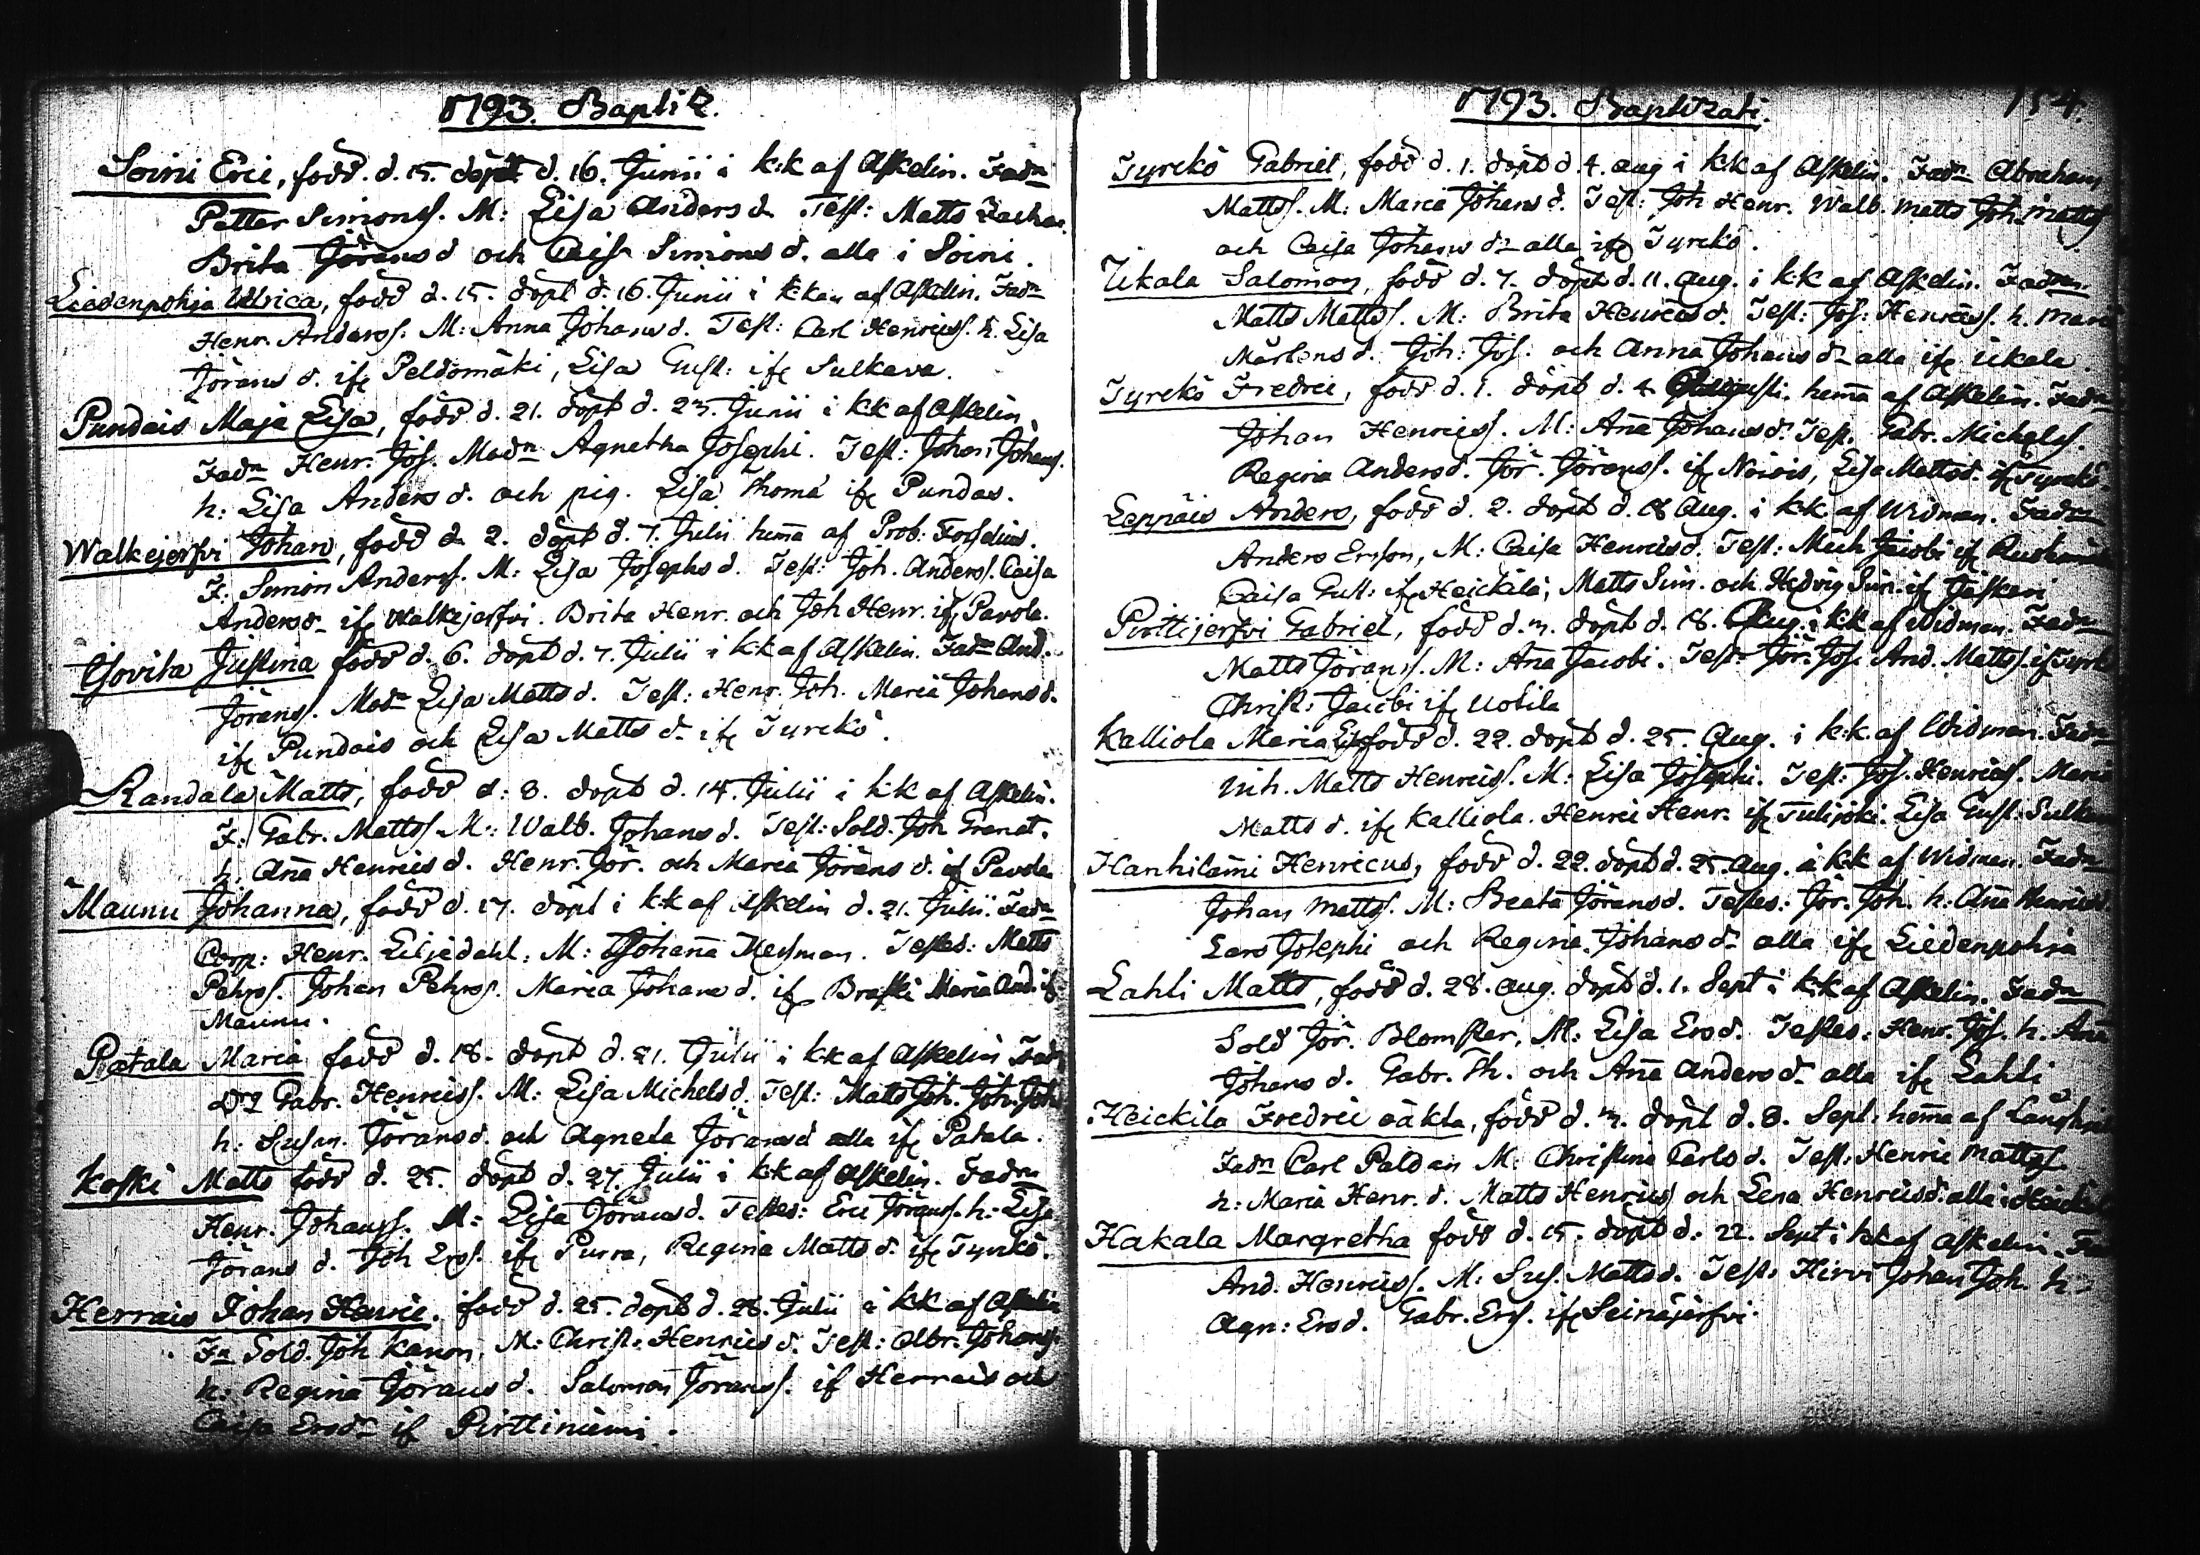 1793. Baptiz.
Soini Eric, född. d. 15. döpt d. 16. Junii i k:k af Askelin. Fadn
Petter Simonss. M: Lisa Anders d. Test: Matts Zachar.
Brita Jörans d och Caisa Simons d. alla i Soini.
Liedenpohja Ulrica, född d. 15. döpt d. 16. Junii i k:kan af Askelin. Fadn
Henr. Anderss. M: Anna Johans d. Test: Carl Henricss. h. Lisa
Jörans d. ifr Peldomäki, Lisa Gust: ifr Sulkava.
Pundais Maja Lisa, född d. 21. döpt d. 23. Junii i k:k af Askelin.
Fadn Henr. Jos. Modn Agnetha Josephi. Test: Johan Johans.
h: Lisa Anders d. och pig. Lisa Thomæ ifr Pundas.
Walkejerfvi Johan, född d 2. döpt d. 7. Julii hema af Prob: Forselius.
F: Simon Anderss. M: Lisa Josephs d. Test: Joh. Anderss. Caisa
Anders d ifr Walkejerfvi. Brita Henr. och Joh Henr. ifr Pavola.
Justina född d. 6. döpt d. 7. Julii i k:k af Askelin. Fadn And.
Jörans. Modn Lisa Matts d. Test: Henr. Joh. Maria Johans d.
ifr Pundais och Lisa Matts d. ifr Tyrckö.
Randala Matts, född d: 8. döpt d. 14. Julii i k:k af Askelin.
F: Gabr. Mattss M: Walb. Johans d. Test: Sold. Joh Granat.
h. Aña Henrics d. Henr. Jör. och Maria Jörans d. if Pavola
Maunu Johanna, född d. 17. döpt i k:k af Askelin d. 21. Julii. Fadn
Corp: Henr. Liljedahl. M: Johaña Hellman. Testes: Matts
Pehrss. Johan Pehrss. Maria Johans d. if Braski Maria And. if
Maunu.
Patala Maria född d. 18. döpt d. 21. Julii i k:k af Askelin Fadn
Gabr. Henricss. M: Lisa Michels d. Test: Matts Joh. Joh. Joh
h: Susan. Jörans d. och Agneta Jörans d alla ifr Patala.
Koski Matts född d. 25. döpt d. 27. Julii i k:k af Askelin. Fadn
Henr. Johanss. M: Lisa Jörans d. Testes: Eric Jöranss. h: Lisa
Jörans d. Joh Erss. ifr Purra, Regina Matts d. ifr Tyrckö.
Herrais Johan Henric. född d. 25. döpt d. 28. Julii i k:k af Askelin
Fn Sold. Joh Kanon, M: Christ: Henrics d. Test: Abr. Johans.
h: Regina Jörans d. Salomon Jöranss. if Herrais och
Caisa Ers d if Pirttiniemi.
1793. Baptizati.
154.
Tyrckö Gabriel, född d. 1. döpt d. 4. aug i k:k af Askelin. Fadn Abraham
Mattss. M: Maria Johans d. Test: Joh Henr. Walb. Matts Joh. Mattss
och Caisa Johans d alla ifr Tyrckö.
Ukala Salomon, född d. 7. döpt d. 11. Aug. i k:k af Askelin. Fadn
Matts Mattss. M: Brita Henrics d. Test: Jos: Henricss. h. Maria
Mårtens d. Joh: Jos: och Anna Johans d alla ifr Ukala.
Tyrckö Fredric, född d. 1. döpt d. 4 Augusti. hema af Askelin. Fadn
Johan Henricss. M: Aña Johans d. Test. Gabr. Michelss.
Regina Anders d. Jör. Jöranss. if Noivis, Lisa Matts d. if Tyrckö.
Leppäis Anders, född d. 2. döpt d. 18 Aug. i k:k af Widman. Fadn
Anders Ersson, M: Caisa Henrics d. Test: Mich Jacobi if
Caisa Gust: ifr Heickilä; Matts Sim. och Hedvig Sim. if Jäskari
Pirttijerfvi Gabriel, född d. 3. döpt d. 18. Aug. i k:k af Widman. Fadn
Matts Jöranss. M: Aña Jacobi. Test: Jör. Jos. And. Mattss. if Tyrk
Christ: Jacobi ifr Uotila
Kalliola Maria Lisa född d. 22. döpt d. 25. Aug. i k:k. af Widman. Fadn
inh. Matts Henricss. M: Lisa Josephi. Test: Jos. Henricss. Maria
Matts d. ifr Kalliola. Henric Henr. ifr Tulijoki. Lisa Gust: Sulkava
Hanhilami Henricus, född d. 22. döpt d. 25. Aug. i k:k af Widman. Fadn
Johan Mattss. M: Beata Jörans d. Testes: Jör. Joh. h: Aña Henrics d.
Lars Josephi och Regina Johans d alla ifr Liedenpohja
Lahli Matts, född d. 28. Aug. döpt d. 1. Sept i k:k af Askelin. Fadn
Sold Jör. Blomster. M: Lisa Ers d. Testes: Henr. Jos. h. Aña
Johans d. Gabr. Th. och Aña Anders d alla ifr Lahli
Heickila Fredric oäkta, född d. 3. döpt d. 8. Sept. hema af
Fadn Carl Paldan M: Christina Carls d. Test: Henric Mattss.
h: Maria Henr. d. Matts Henrics och Lena Henrics d. alla i Heickila
Hakala Margretha född d. 15. döpt d. 22. Sept i k:k af Askelin. Fad
And. Henricss. M: Sus. Matts d. Test: Hirvi Johan Joh. h:
Agn: Ers d. Gabr. Erss. ifr Seinäjerfvi.